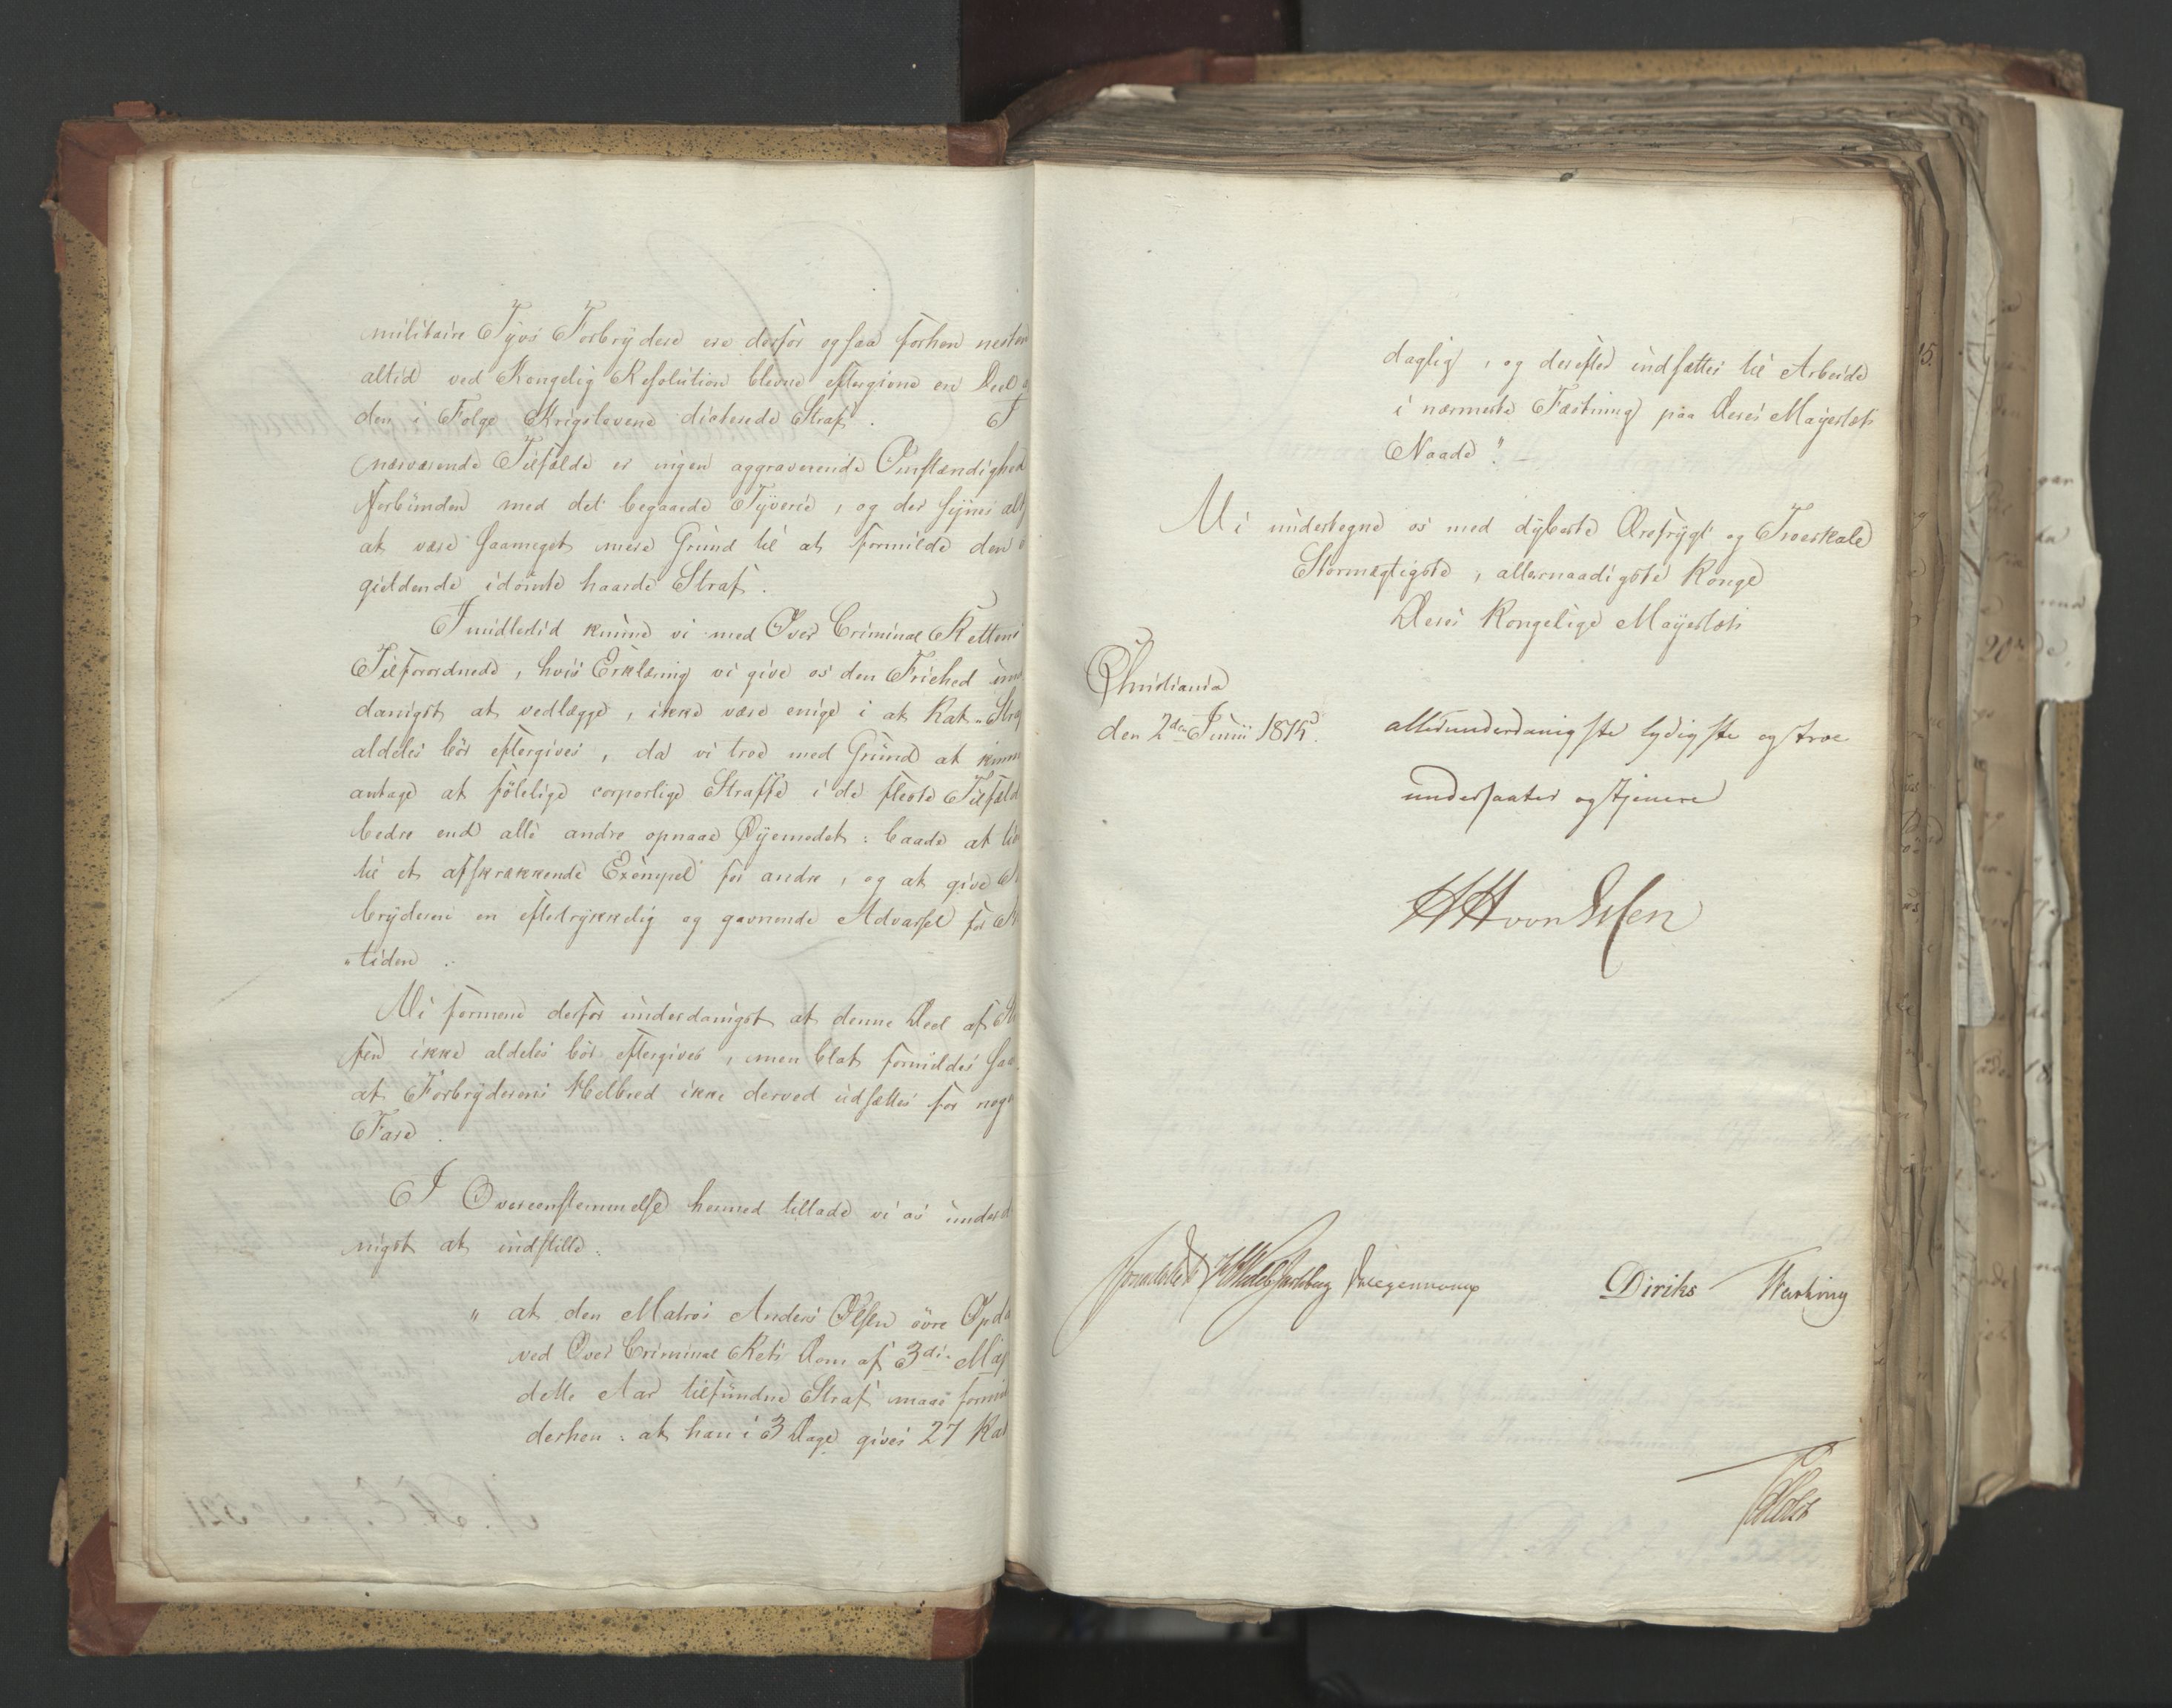 militaire Tyvs Forbrydere ere derfor ogsaa forhen nesten
altid ved Kongelig Resolution blevne eftergivne en Deel
den i Følge Krigslovene dicterede Straf. I
nærværende Tilfælde er ingen aggraverende Omstændighed
forbunden med det begaaede Tyverie, og der synes alt
at være saameget mere Grund til at formilde den
gieldende idømte haarde Straf.
Imidlertid kunne vi med Over Criminal Rettens
Tilforordnede, hvis Erklæring vi give os den Friehed un
danigst at vedlægge, ikke være enige i at Kat-Straf
aldeles bør eftergives, da vi troe med Grund at kunne
antage at følelige corporlige Straffe i de fleste Tilfæld
bedre end alle andre opnaae Øyemedet: baade at
til et afskrækkende Exempel for andre, og at give
bryderen en eftertrykkelig og gavnende Advarsel for
"tiden.
Vi formene derfor underdanigst at denne Deel af
fen ikke aldeles bør eftergives, men blot formildes saa
at Forbryderens Helbred ikke derved udsættes for noge
Fare.
I Overeenstemmelse hermed tillade vi os underd
nigst at indstille:
" at den Matros Anders Olsen øvre Opd
ved Over Criminal Rets Dom af 3die Maj
dette Aar tilfundne Straf maae formil
derhen: at han i 3 Dage gives 27 Kat
daglig, og derefter indsættes til Arbeide
i nærmeste Fæstning paa Deres Mayestæts
Naade".
Vi undertegne os med dybeste Ærefrygt og Troeskab
Stormægtigste, allernaadigste Konge
Deres Kongelige Mayestæts
Christiania
den 2den Junii 1815.
allerunderdanigste lydigste og troe
undersaater og tjenere
HH von Essen
Sommerhielm Diriks